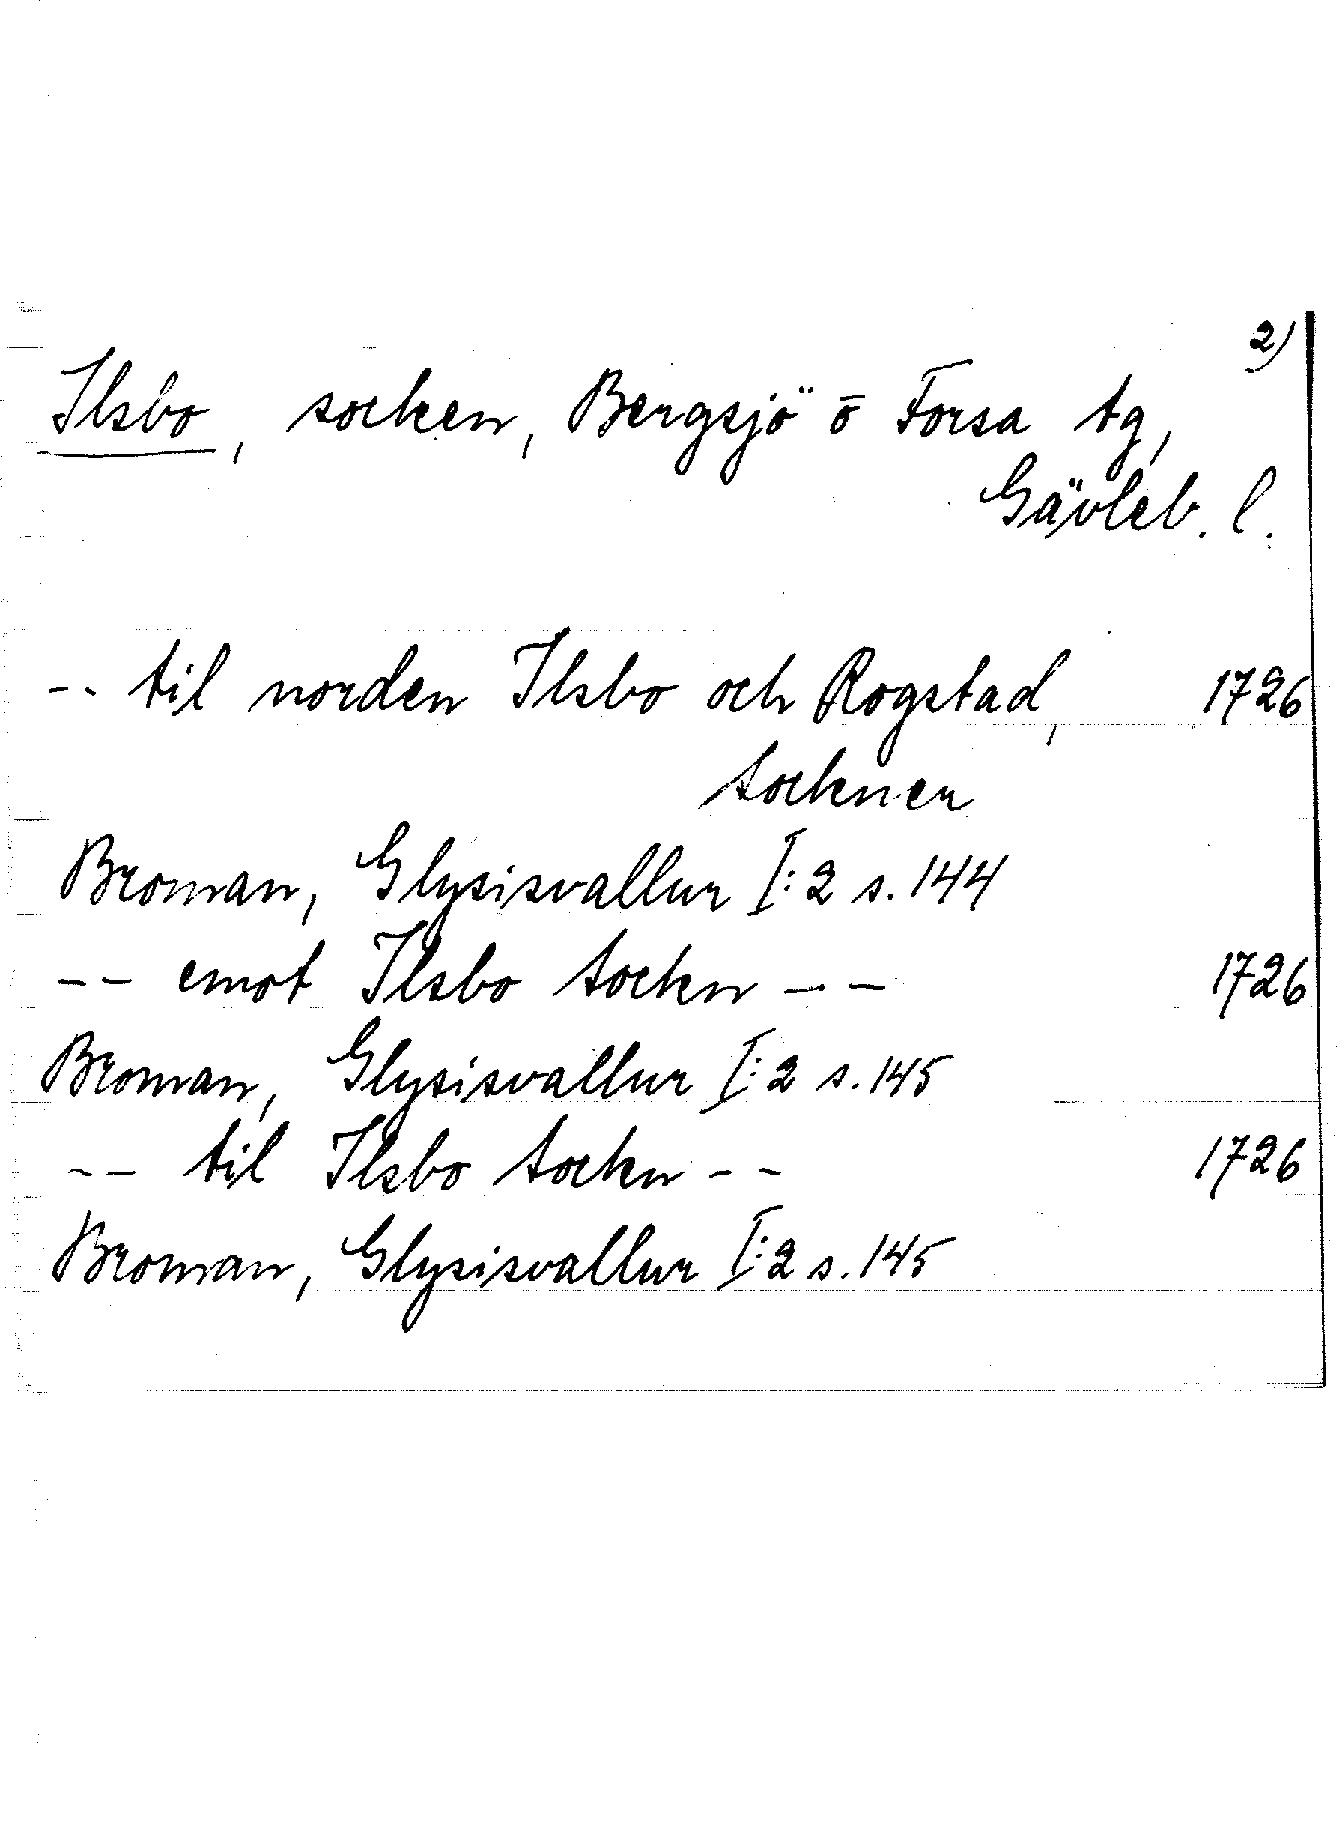 2)
Ilsbo, socken, Bergsjö o Forsa tg,
Gävleb. l.
-- til norden Ilsbo och Rogstad, 1726
Sockner
Broman, Glysisvallur I:2 s. 144
-- emot Ilsbo Sockn -- 1726
Broman, Glysisvallur I:2 s. 145
-- til Ilsbo Sockn -- 1726
Broman, Glysisvallur I:2 s. 145